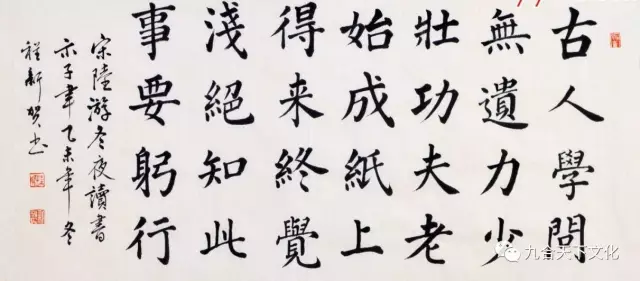 古人學問
無遺力少
壯功夫老
始成紙上
得来終覺
淺絕知此
事要躬行
宋陸游冬夜讀書
示子聿乙未年冬
程新书
九合天下文化